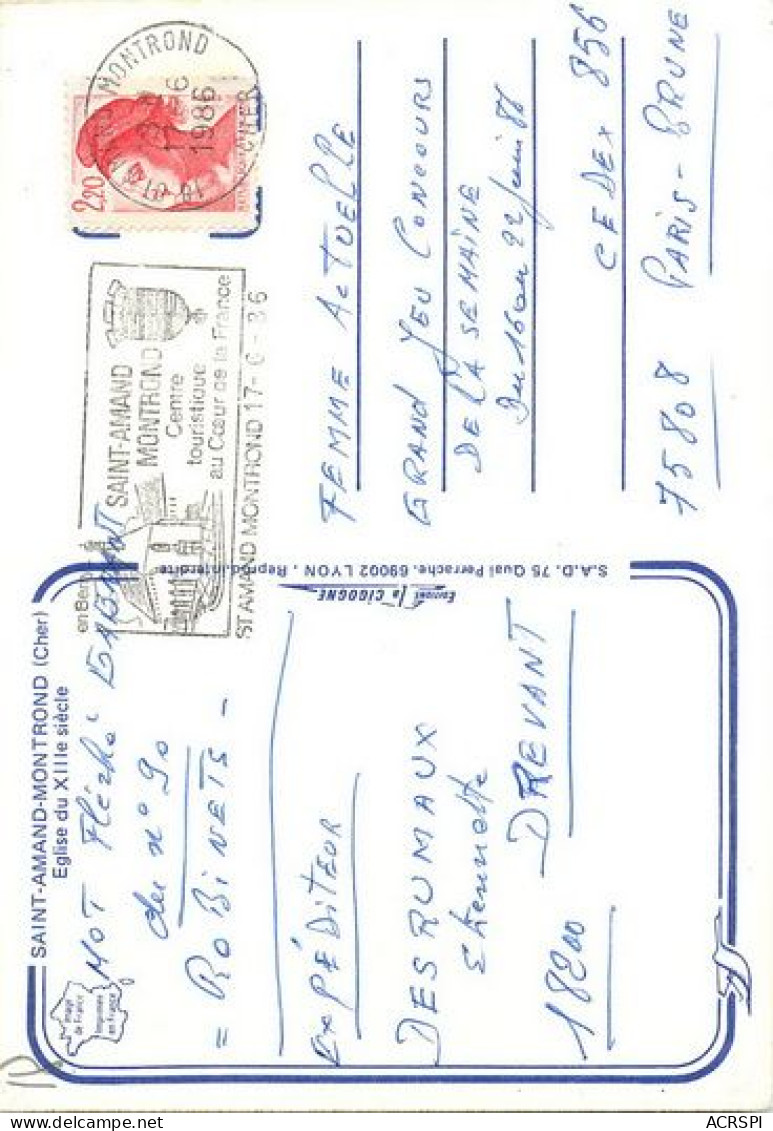 SAINT-AMAND-MONTROND (Cher)
Eglise du XIIIe siècle
Image
de France
Imprimée
en France
MOT Fléché GAGNANT
du n° 90
= ROBINETS -
EXPÉDITEUR
DESRUMAUX
DREVANT
18200
Editions la CIGOGNE
S.A.D. 75 Quai Perrache. 69002 LYON . Reprod. interdite
MONTROND
17 - 6
1986
CHER
2,20
en Berry
SAINT-AMAND
MONTROND
Centre
touristique
au Cœur de la France
ST AMAND MONTROND 17-6-86
FEMME ACTUELLE
GRAND JEU CONCOURS
DE LA SEMAINE
Du 16 au 22 juin 86
CEDEX 856
75808 PARIS-BRUNE
ACRSPI